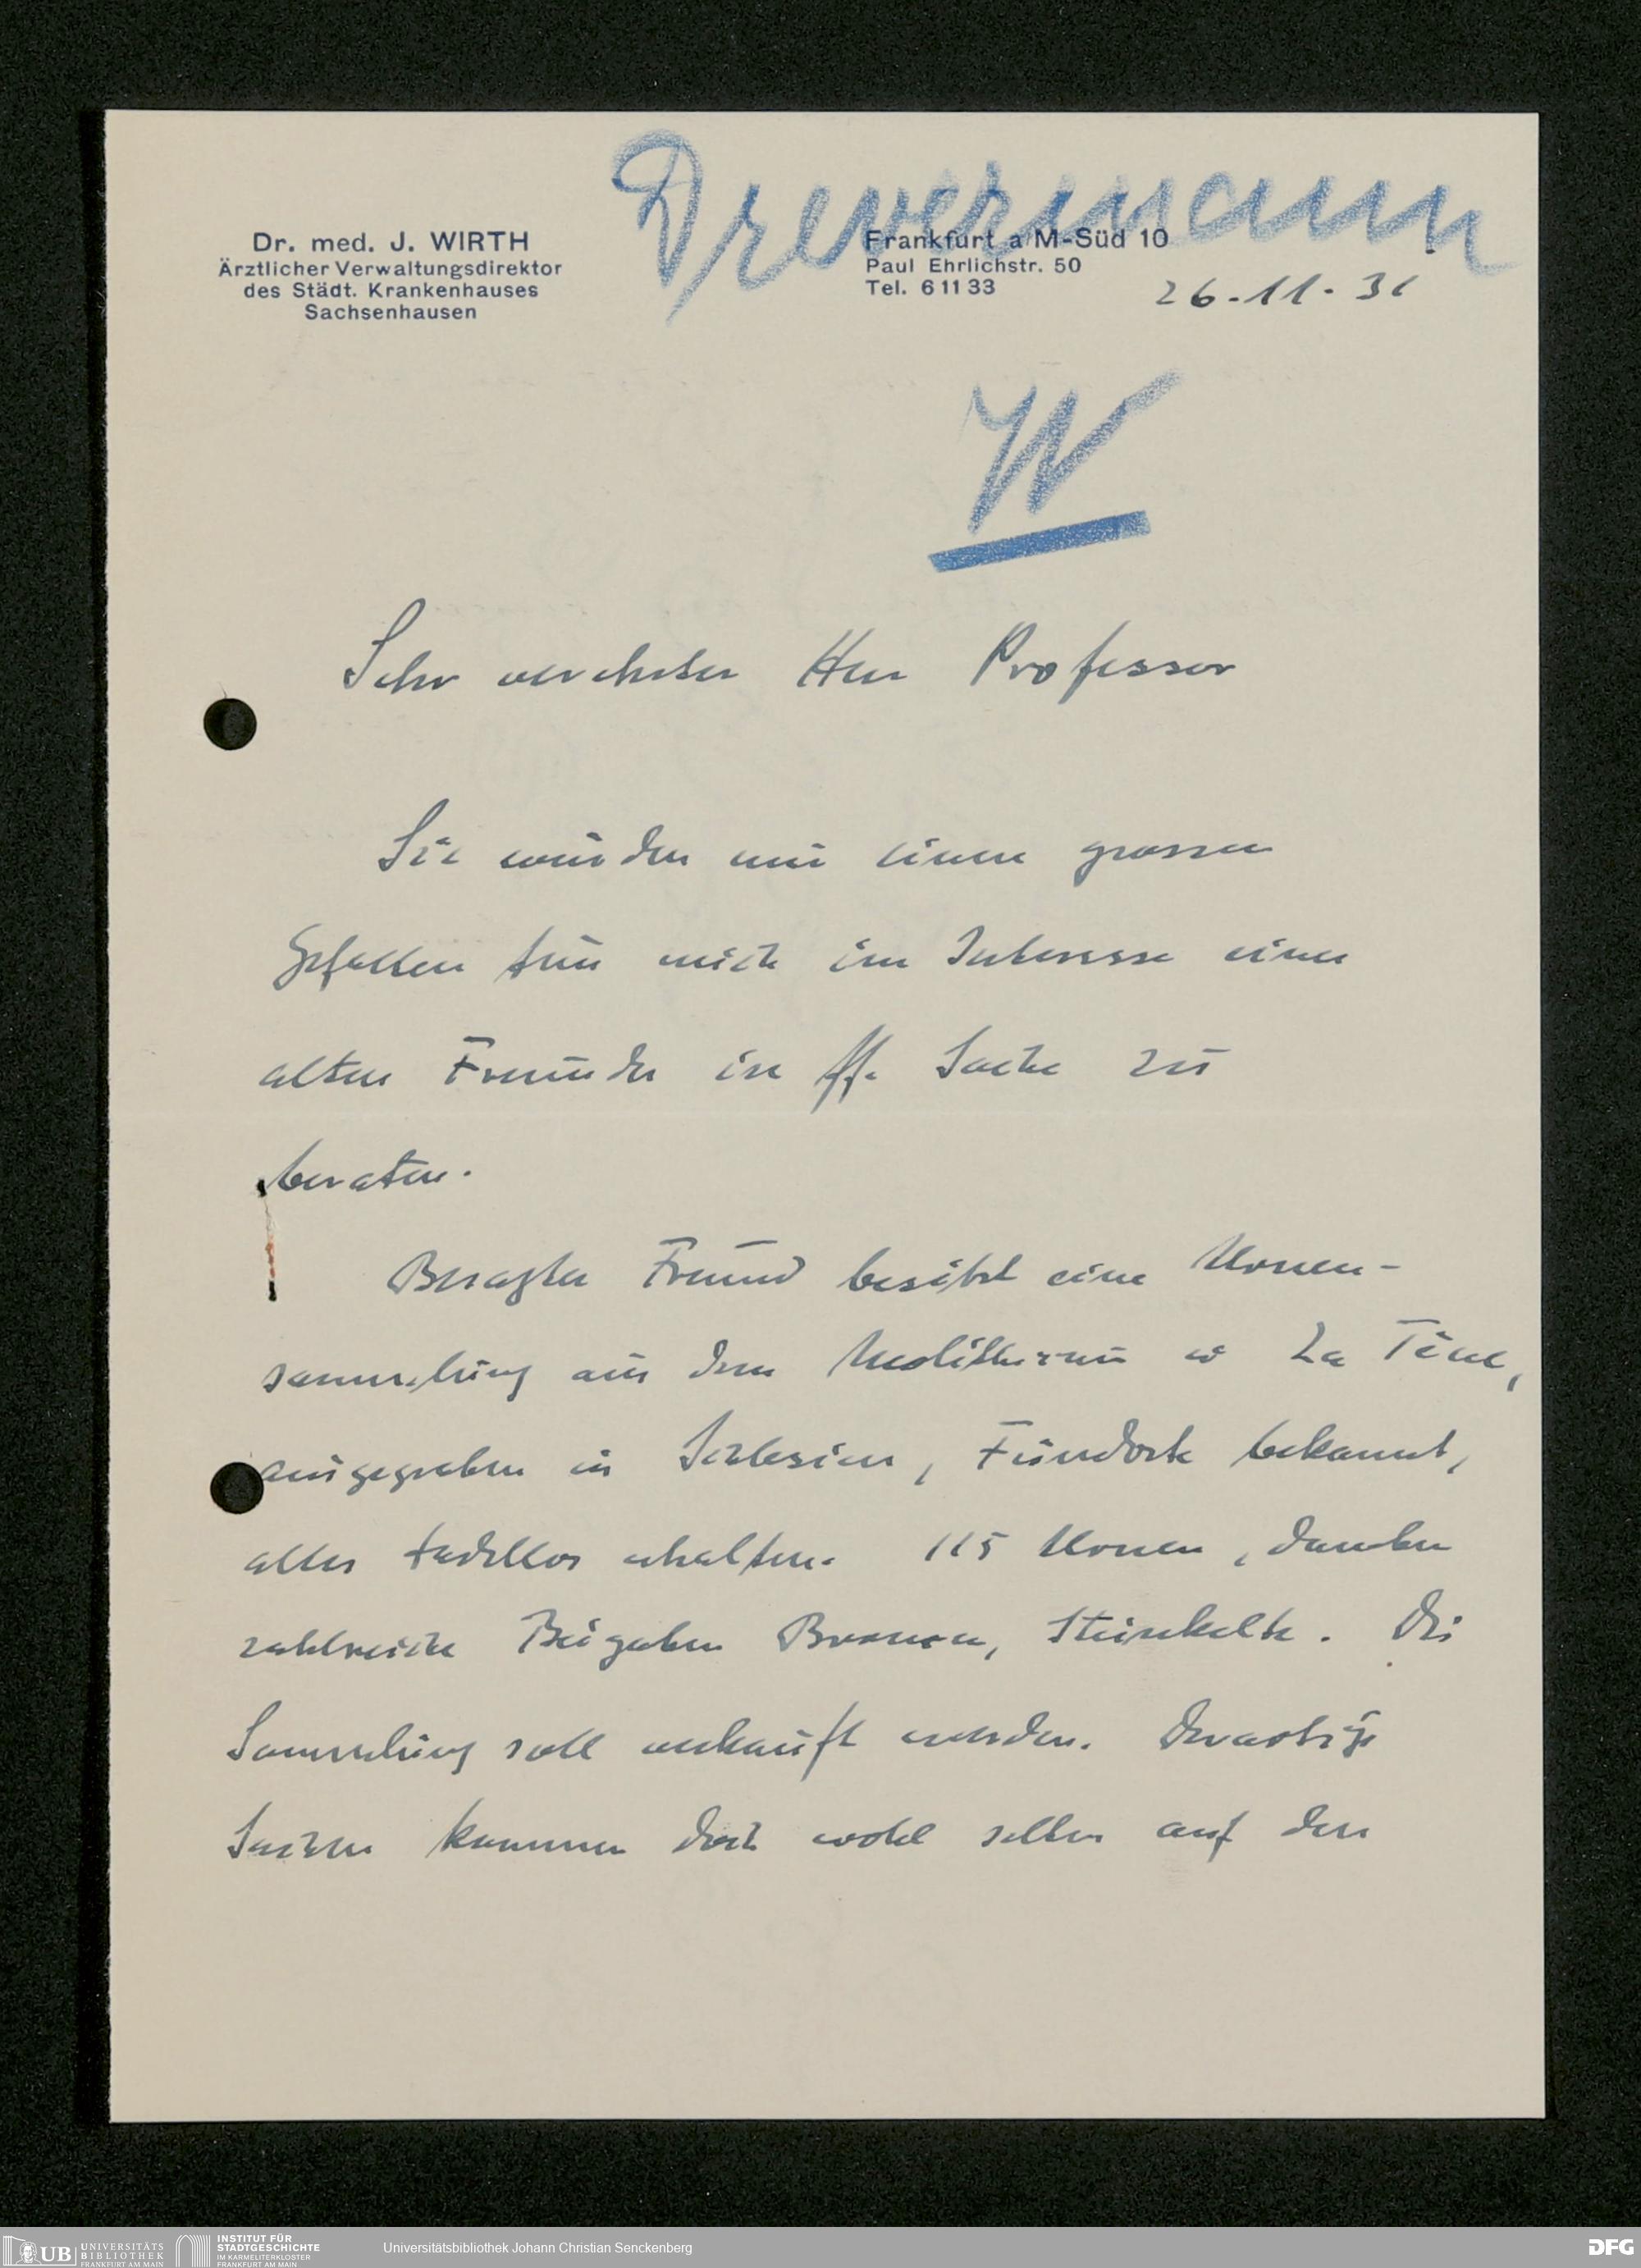 Drevermann
Dr. med. J. WIRTH
Ärztlicher Verwaltungsdirektor
des Städt. Krankenhauses
Sachsenhausen
Frankfurt a/M-Süd 10
Paul Ehrlichstr. 50
Tel. 6 11 33
26.11.31
W
Sehr verehrter Herr Professor
Sie würden mir einen grossen
Gefallen tun mich im Interesse eines
alten Freundes in ff. Sache zu
beraten.
Besagter Freund besitzt eine Urnen-
sammlung aus dem Neolithicum u La Tène,
ausgegraben in Schlesien, Fundorte bekannt,
alles tadellos erhalten. 115 Urnen, daneben
zahlreiche Beigaben Bronzen, Steinkelte. Die
Sammlung soll verkauft werden. Derartige
Sachen kommen doch wohl selten auf den
UB
UNIVERSITÄTS
BIBLIOTHEK
FRANKFURT AM MAIN
INSTITUT FÜR
STADTGESCHICHTE
IM KARMELITERKLOSTER
FRANKFURT AM MAIN
Universitätsbibliothek Johann Christian Senckenberg
DFG